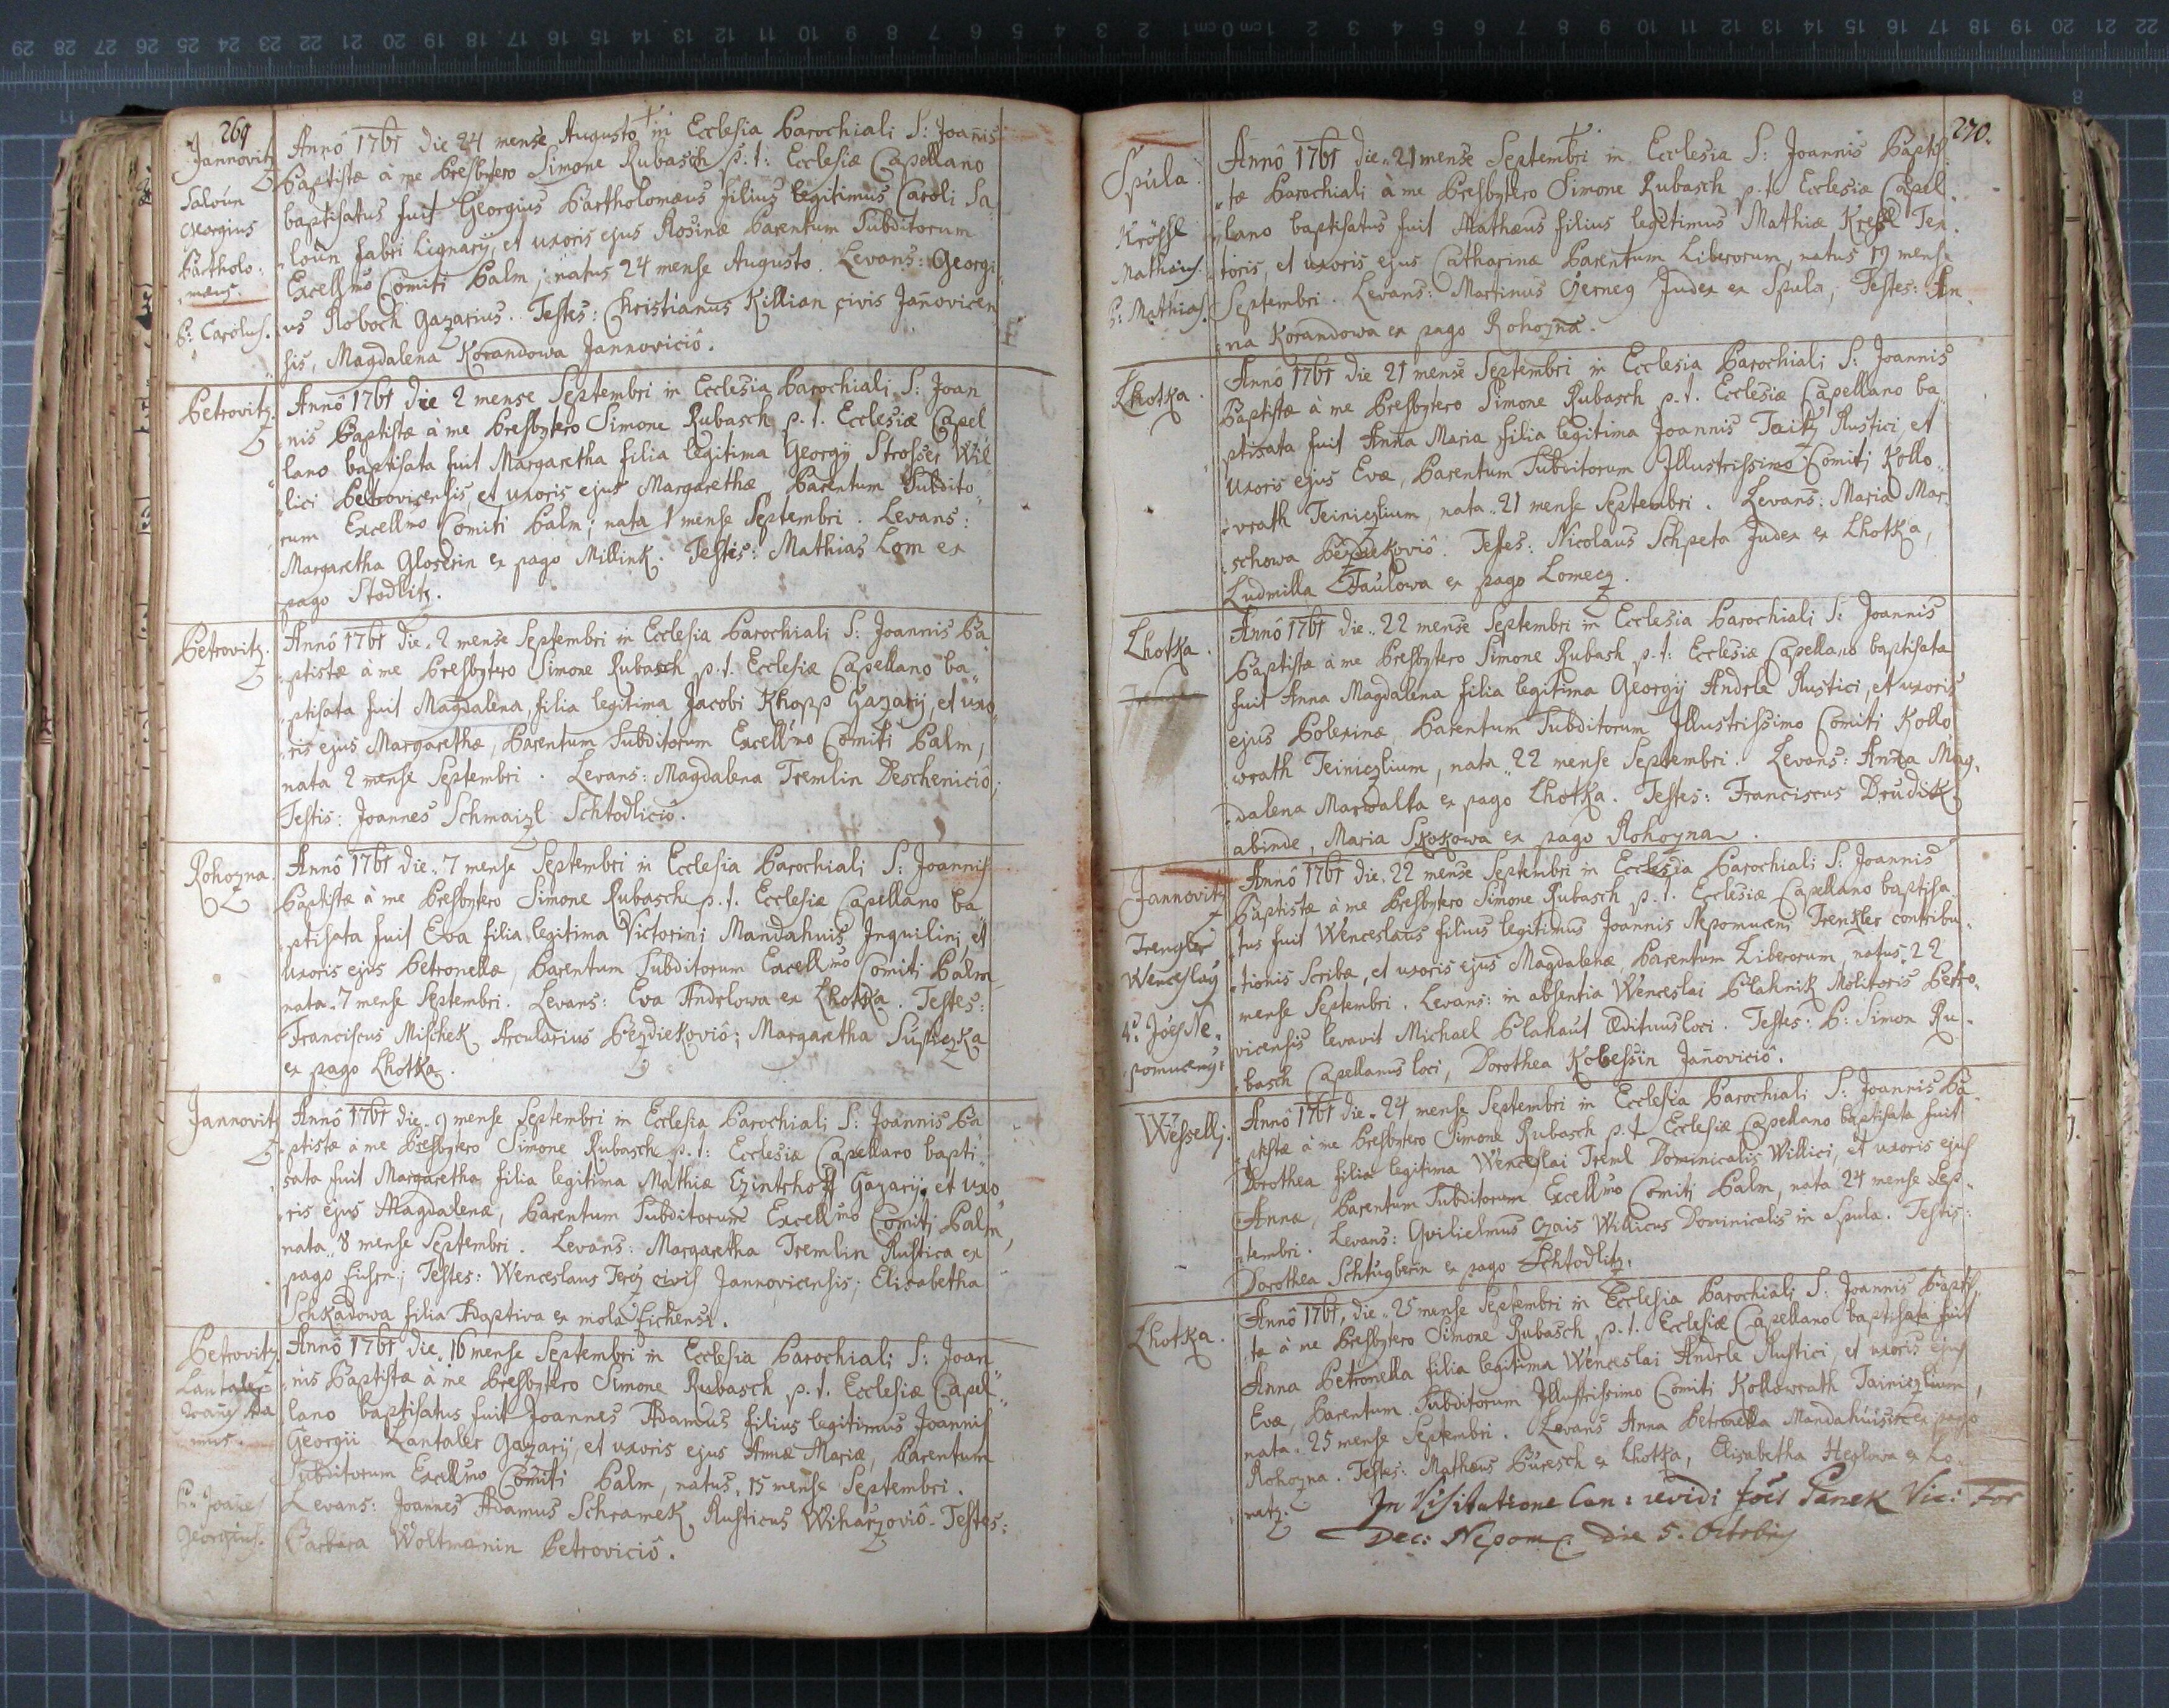 269
Jannovitz
Saloun
Georgius
Bartholo:
mæus.
P: Carolus.
Annô 1761 die 24 mense Augusto in Ecclesia Parochiali S: Joañis
Baptistæ à me Presbytero Simone Rubasch p. t: Ecclesiæ Capellano
baptisatus fuit Georgius Bartholomæus filius legitimus Caroli Sa
loun fabri lignarij, et uxoris ejus Rosinæ Parentum Subditorum
Excellmo Comiti Palm; natus 24 mense Augusto. Levans: Georgi
us Roboch gazarius. Testes: Christianus Killian civis Jañovicen
sis, Magdalena Korandowa Jannoviciô.
Petrovitz.
Annô 1761 die 2 mense Septembri in Ecclesia Parochiali S: Joan
nis Baptistæ à me Presbytero Simone Rubasch p. t. Ecclesiæ Capel
lano baptisata fuit Margaretha filia legitima Georgij Strosser Wil
lici Petrovicensis, et uxoris ejus Margarethæ, Parentum Subdito
rum Excellmo Comiti Palm; nata 1 mense Septembri. Levans:
Margaretha Gloserin ex pago Millink. Testis: Mathias Lom ex
pago Stodlitz.
Petrovitz.
Annô 1761 die 2 mense Septembri in Ecclesia Parochiali S: Joannis Ba
ptistæ à me Presbytero Simone Rubasch p. t. Ecclesiæ Capellano ba
ptisata fuit Magdalena, filia legitima Jacobi Khopp Gazarij, et uxo
ris ejus Margarethæ, Parentum Subditorum Excellmo Comiti Palm,
nata 2 mense Septembri. Levans: Magdalena Tremlin Descheniciô;
Testis: Joannes Schmaizl Schtodliciô.
Rohozna.
Annô 1761 die 7 mense Septembri in Ecclesia Parochiali S: Joannis
Baptistæ à me Presbytero Simone Rubasch p. t. Ecclesiæ Capellano ba
ptisata fuit Eva filia legitima Victorini Mandahuis Inquilini, et
uxoris ejus Petronellæ, Parentum Subditorum Excellmo Comiti Palm
nata 7 mense Septembri. Levans: Eva Andrlowa ex Lhotka. Testes:
Franciscus Mischek Arcularius Bezdiekoviô; Margaretha
ex pago Lhotka.
Jannovitz
Annô 1761 die 9 mense Septembri in Ecclesia Parochiali S: Joannis Ba
ptistæ à me Presbytero Simone Rubasch p. t: Ecclesiæ Capellano bapti
sata fuit Margaretha filia legitima Mathiæ Gazarij, et uxo
ris ejus Magdalenæ, Parentum Subditorum Excellmo Comiti Palm,
nata 8 mense Septembri. Levans: Margaretha Tremlin Rustica ex
pago; Testes: Wenceslaus civis Jannovicensis; Elisabetha
Schkadowa filia Adaptiva ex mola
Petrovitz.
Lantaler
Joañes Ada
mus.
P: Joañes
Georgius.
Annô 1761 die 16 mense Septembri in Ecclesia Parochiali S: Joan
nis Baptistæ à me Presbytero Simone Rubasch p. t. Ecclesiæ Capel
lano baptisatus fuit Joannes Adamus filius legitimus Joannis
Georgii Lantaler Gazarij, et uxoris ejus Annæ Mariæ, Parentum
Subditorum Excellmo Comiti Palm, natus 15 mense Septembri.
Levans: Joannes Adamus Schramek, Rusticus Wiharzoviô. Testes:
Barbara Woltmanin Petroviciô.
270.
Spula.
Krössl
Mathæus.
P: Mathias.
Annô 1761 die 21 mense Septembri in Ecclesia S: Joannis Baptis
tæ Parochiali à me Presbytero Simone Rubasch p. t. Ecclesiæ Capel
lano baptisatus fuit Mathæus filius legitimus Mathiæ Kressl Tex
toris, et uxoris ejus Catharinæ Parentum Liberorum, natus 19 mense
Septembri. Levans: Martinus Czerney Judex ex Spula, Testes: An
na Korandowa ex pago Rohozna.
Lhotka.
Annô 1761 die 21 mense Septembri in Ecclesia Parochiali S: Joannis
Baptistæ à me Presbytero Simone Rubasch p. t. Ecclesiæ Capellano ba
ptisata fuit Anna Maria filia legitima Joannis Taitz Rustici, et
uxoris ejus Evæ, Parentum Subditorum Illustrissimo Comiti Kollo
wrath Teiniczlium, nata 21 mense Septembri. Levans: Maria Mar
schowa Bezdiekoviô. Testes: Nicolaus Schpeta Judex ex Lhotka,
Ludmilla Taulowa ex pago Lomecz.
Lhotka.
Annô 1761 die 22 mense Septembri in Ecclesia Parochiali S: Joannis
Baptistæ à me Presbytero Simone Rubash p. t: Ecclesiæ Capellano baptisata
fuit Anna Magdalena filia legitima Georgij Andrla Rustici, et uxoris
ejus Polexinæ, Parentum Subditorum Illustrissimo Comiti Kollo
wrath Teiniczlium, nata 22 mense Septembri. Levans: Anna Mag
dalena Marwalta ex pago Lhotka. Testes: Franciscus Drudik
abinde, Maria Skokowa ex pago Rohozna.
Jannovitz
Trengler
Wenceslaus
P: Jões Ne
pomucenus
Annô 1761 die 22 mense Septembri in Ecclesia Parochiali S: Joannis
Baptistæ à me Presbytero Simone Rubasch p. t. Ecclesiæ Capellano baptisa
tus fuit Wenceslaus filius legitimus Joannis Nepomuceni Trenkler contribu
tionis Scribæ, et uxoris ejus Magdalenæ, Parentum Liberorum, natus 22
mense Septembri. Levans: in absentia Wenceslai Blahnik Molitoris Petro
vicensis levavit Michael Blahaut Ædituus loci. Testes: P: Simon Ru
basch Capellanus loci, Dorothea Kobessin Jañoviciô.
Wessellj.
Annô 1761 die 24 mense Septembri in Ecclesia Parochiali S: Joannis Ba
ptistæ à me Presbytero Simone Rubasch p. t Ecclesiæ Capellano baptisata fuit
Dorothea filia legitima Wenceslai Treml Dominicalis Willici, et uxoris ejus
Annæ, Parentum Subditorum Excellmo Comiti Palm, nata 24 mense Sep
tembri. Levans: Gvilielmus Czais Willicus Dominicalis in Spula. Testis:
Dorothea Schtugberin ex pago Schtodlitz.
Lhotka.
Annô 1761, die 25 mense Septembri in Ecclesia Parochiali S: Joannis Baptis
tæ à me Presbytero Simone Rubasch p. t. Ecclesiæ Capellano baptisata fuit
Anna Petronella filia legitima Wenceslai Andrle Rustici, et uxoris ejus
Evæ, Parentum Subditorum Illustrissimo Comiti Kollowrath Tainiczlium,
nata 25 mense Septembri. Levans Anna Petronella ex pago
Rohozna. Testes: Mathæus Buresch ex Lhotka, Elisabetha Heglowa ex Lo
matz.
In Visitatione Can: revidi Jões Panek Vic: For
Dec: Nepom. die 5. Octobris